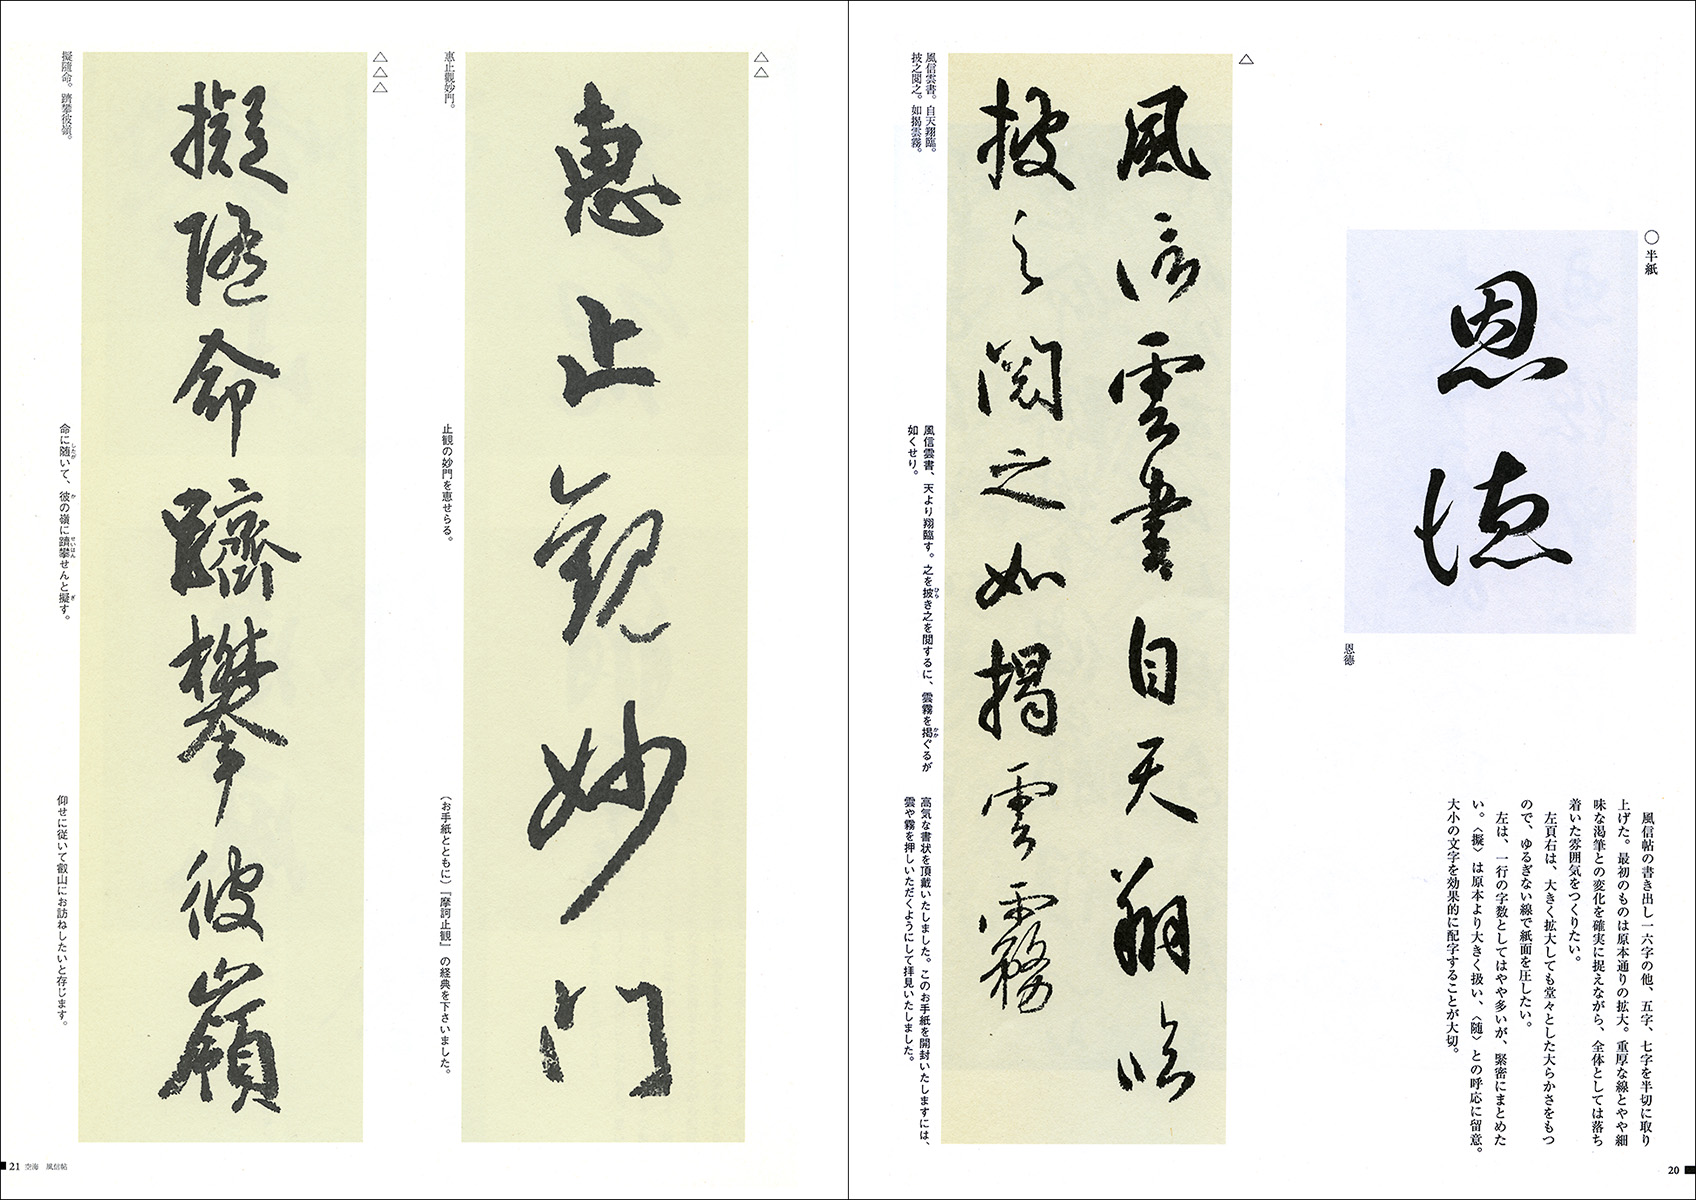 ○半紙
恩徳
恩徳
風信帖の書き出し一六字の他、五字、七字を半切に取り
上げた。最初のものは原本通りの拡大。重厚な線とやや細
味な渇筆との変化を確実に捉えながら、全体としては落ち
着いた雰囲気をつくりたい。
左頁右は、大きく拡大しても堂々とした大らかさをもつ
ので、ゆるぎない線で紙面を圧したい。
左は、一行の字数としてはやや多いが、緊密にまとめた
い。〈擬〉は原本より大きく扱い、〈随〉との呼応に留意。
大小の文字を効果的に配字することが大切。
△
風信雲書自天翔臨
披之閲之如揭雲霧
風信雲書。自天翔臨。
披之閲之。如揭雲霧。
風信雲書、天より翔臨す。之を披き之を閲するに、雲霧を掲ぐるが
如くせり。
ひら
かか
高気な書状を頂戴いたしました。このお手紙を開封いたしますには、
雲や霧を押しいただくようにして拝見いたしました。
20
△△
恵止觀妙門
惠止觀妙門。
止観の妙門を恵せらる。
（お手紙とともに）『摩訶止観』の経典を下さいました。
△△△
擬随命躋攀彼嶺
擬隨命。躋攀彼嶺。
命に随いて、彼の嶺に躋攀せんと擬す。
したが
か
せいはん
ぎ
仰せに従いて叡山にお訪ねしたいと存じます。
21 空海 風信帖